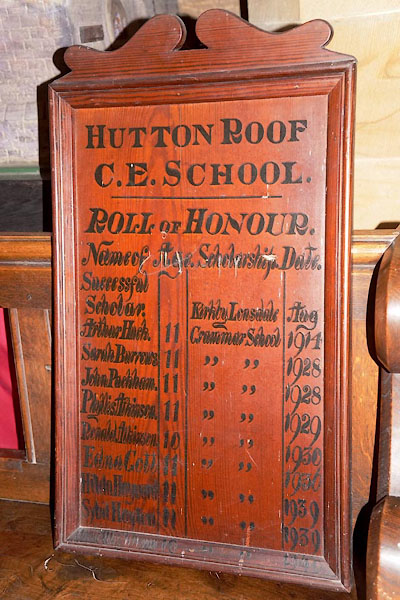 HUTTON ROOF
C.E. SCHOOL.
ROLL OF HONOUR.
Name of Age. Scholarship. Date.
Successful
Scholar. Kirkby Lonsdale Aug
Arthur 11 Grammar School 1914
Sarah Burrows 11 " " 1928
John Packham. 11 " " 1928
Phyllis Atkinson 11 " " 1929
Ronald Atkinson 10 " " 1930
Edna 11 " " 1930
Hilda 11 " " 1939
11 " " 1939